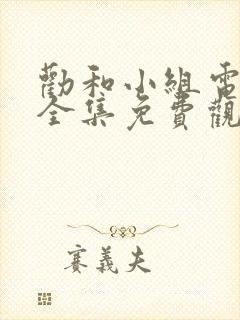 勸和小組電
全集免費觀
賽義夫